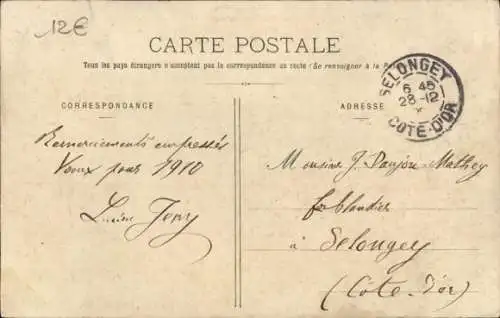 12€
CARTE POSTALE
Tous les pays étrangers n'acceptent pas la correspondance au recto (Se renseigner à la Po
SELONGEY
6 45
28-12
COTE-D'OR
CORRESPONDANCE
ADRESSE
Remerciements empressés
Voeux pour 1910
Lucien
Monsieur J. Daujou-Mathey
ferblantier
à
Selongey
(Côte d'or)